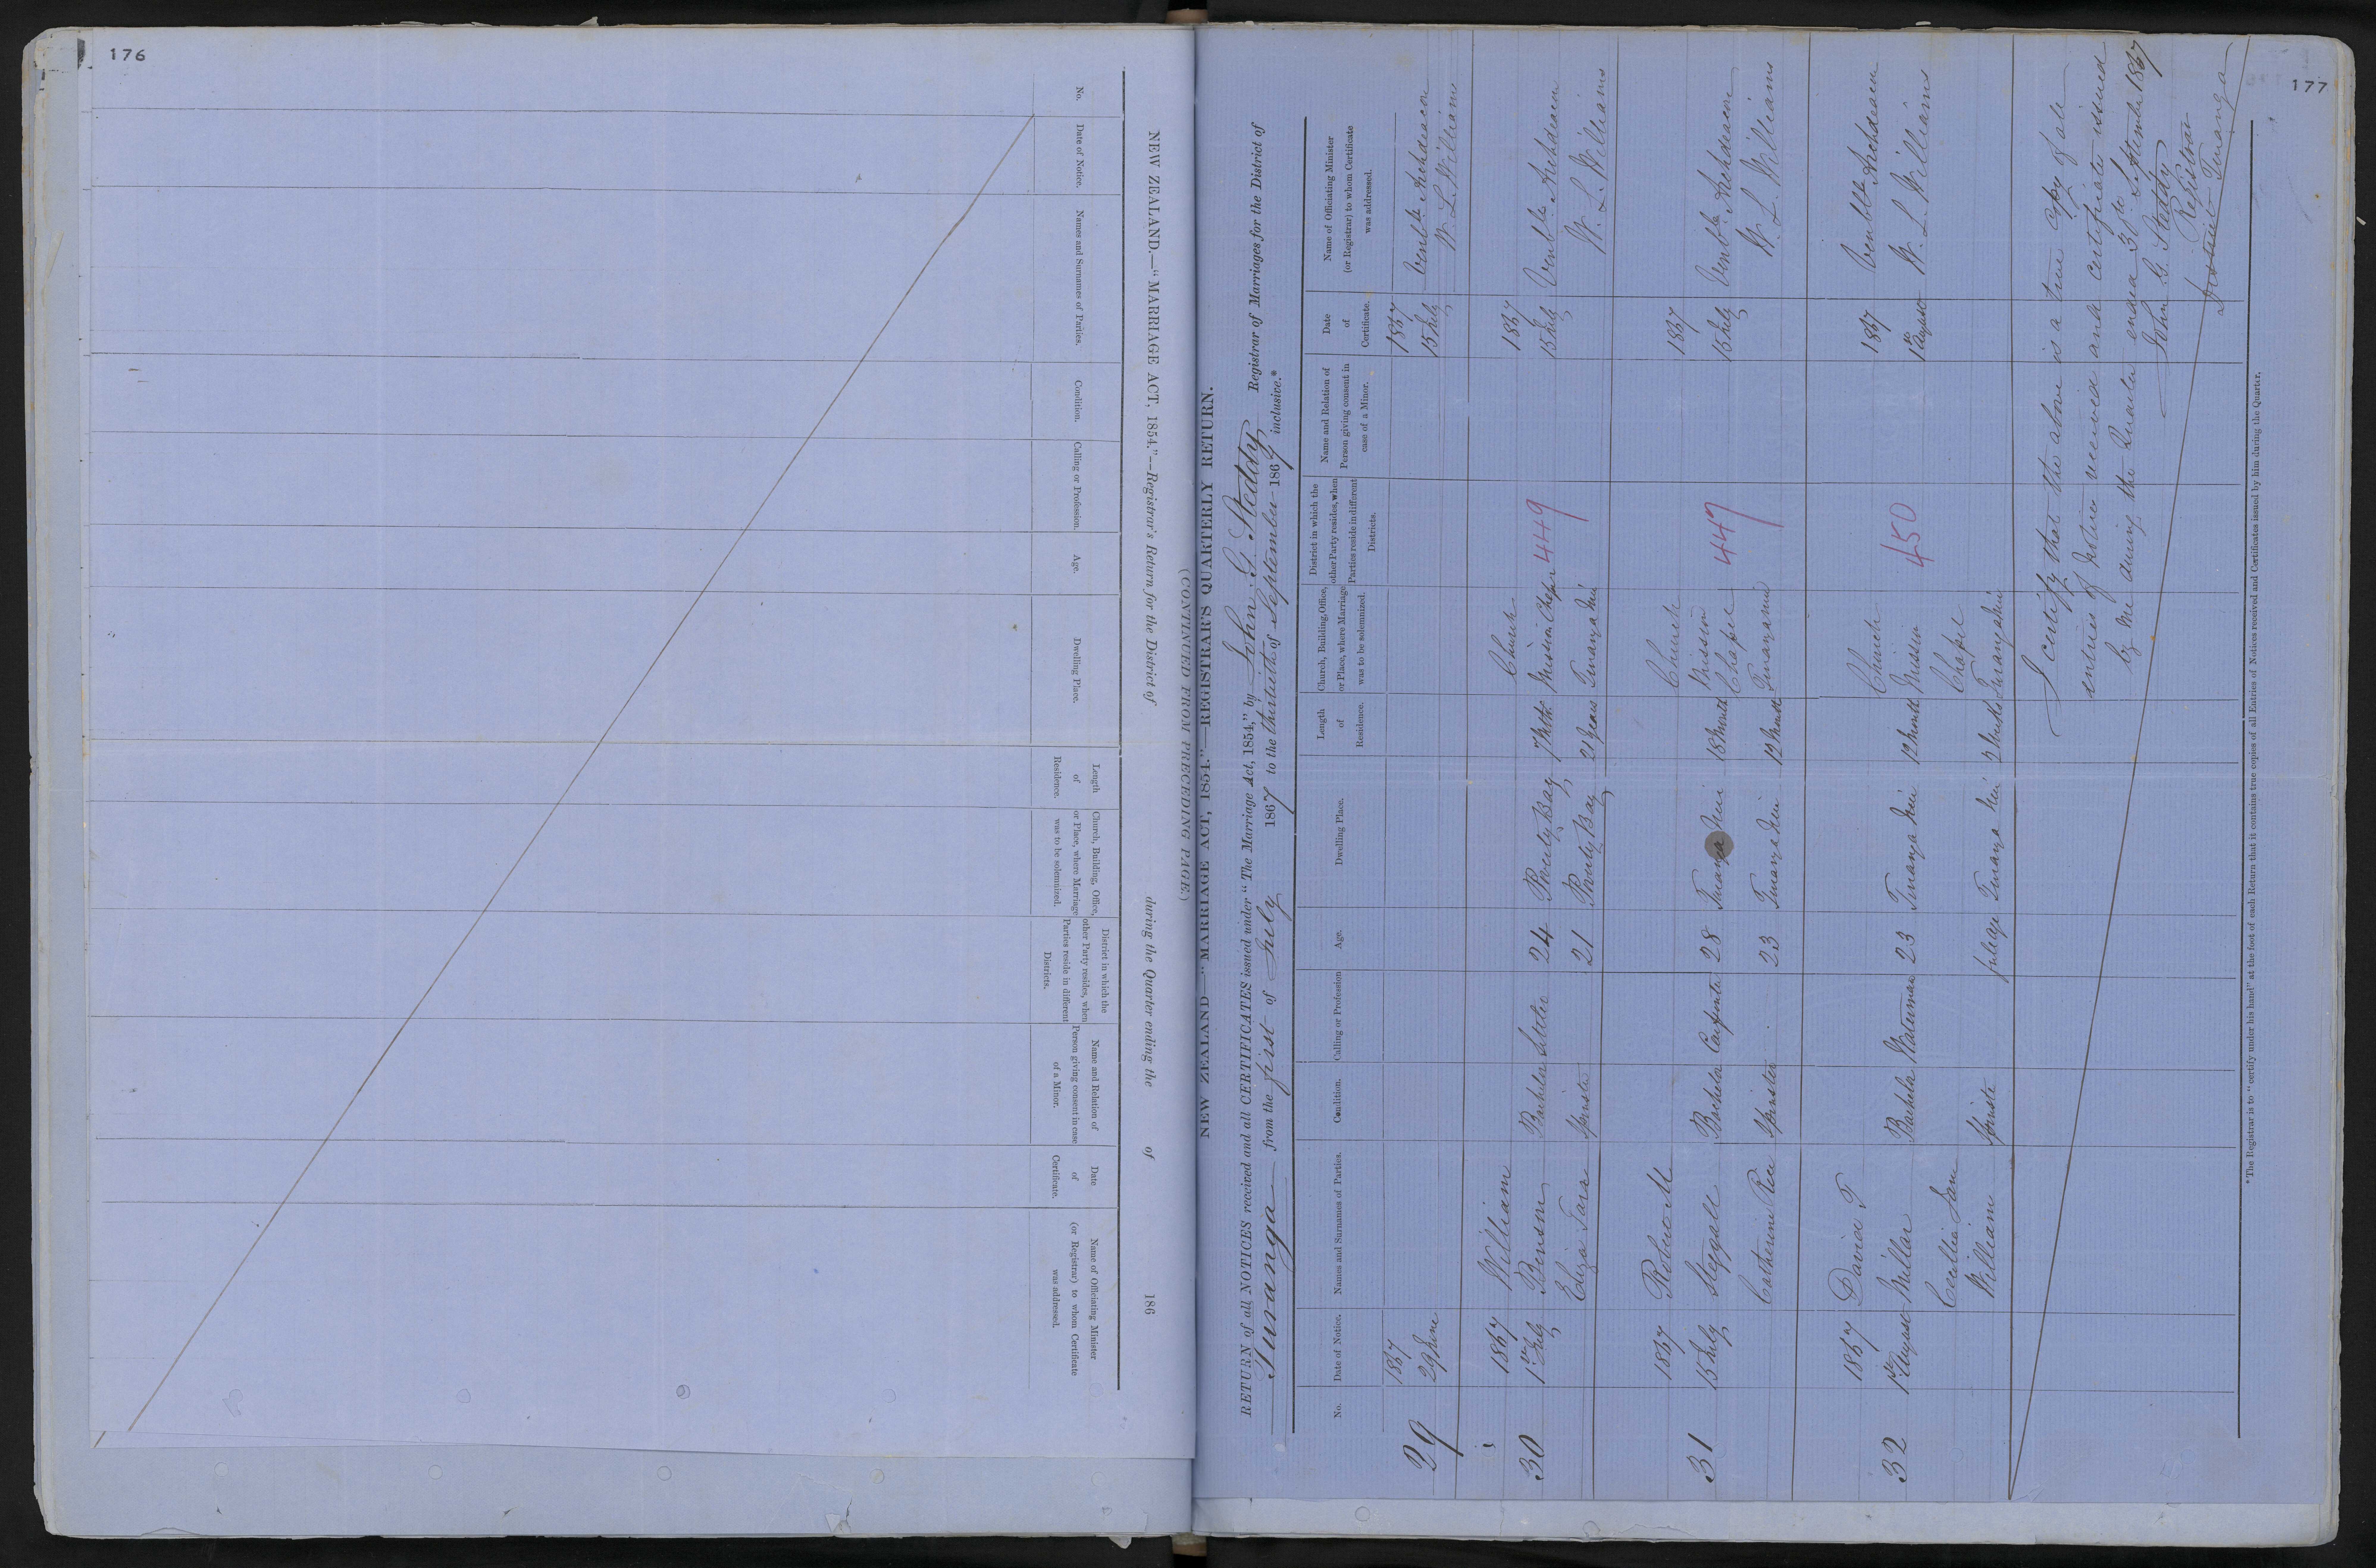 176
NEW ZEALAND.—"MARRIAGE ACT, 1854."—Registrar's Return for the District of during the Quarter ending the of 186
No.
Date of Notice.
Names and Surnames of Parties.
Condition.
Calling or Profession.
Age.
Dwelling Place.
Length
of
Residence.
Church, Building, Office,
or Place, where Marriage
was to be solemnized.
District in which the
other Party resides, when
Parties reside in different
Districts.
Name and Relation of
Person giving consent in case
of a Minor.
Date
of
Certificate.
Name of Officiating Minister
(or Registrar) to whom Certificate
was addressed.
(CONTINUED FROM PRECEDING PAGE)
177
NEW ZEALAND—"MARRIAGE ACT, 1854."—REGISTRAR'S QUARTERLY RETURN.
RETURN of all NOTICES received and all CERTIFICATES issued under "The Marriage Act, 1854," by John G. Steddy Registrar of Marriages for the District of
Turanga from the first of July 1867 to the thirtieth of September 1867 inclusive.*
No.
Date of Notice.
Names and Surnames of Parties.
Condition.
Calling or Profession
Age.
Dwelling Place.
Length
of
Residence.
Church, Building, Office,
or Place, where Marriage
was to be solemnized.
District in which the
other Party resides, when
Parties reside in different
Districts.
Name and Relation of
Person giving consent in
case of a Minor.
Date
of
Certificate.
Name of Officiating Minister
(or Registrar) to whom Certificate
was addressed.
1867 1867
29 29 June 15 July Venble Archdeacon
W. L. Williams
1867 William Church 1867
30 1st July Benson Bachelor Settler 24 Poverty Bay 7 Mths Mission Chapel 449 15 July Venble Archdeacon
Eliza Tarr Spinster 21 Poverty Bay 21 years Turanga Nui W. L. Williams
1867 Robert M Church 1867
31 15 July Steggall Bachelor Carpenter 28 Turanga Nui 18 Months Mission Chapel 447 15 July Venble Archdeacon
Catherine Rice Spinster 23 Turanga Nui 12 Months Turanganui W. L. Williams
1867 David T Church 1867 Venble Archdeacon
32 1st August Millar Bachelor Waterman 23 Turanga Nui 12 Months Mission 450 1st August W. L. Williams
Cecilia Jane Chapel
Williams Spinster full age Turanga Nui 2 Months Turanganui
I certify that the above is a true copy of all
entries of Notices received and Certificates issued
by me during the Quarter ended 30th September 1867
John G. Steddy
Registrar
District Turanga
*The Registrar is to "certify under his hand" at the foot of each Return that it contains true copies of all Entries of Notices received and Certificates issued by him during the Quarter.